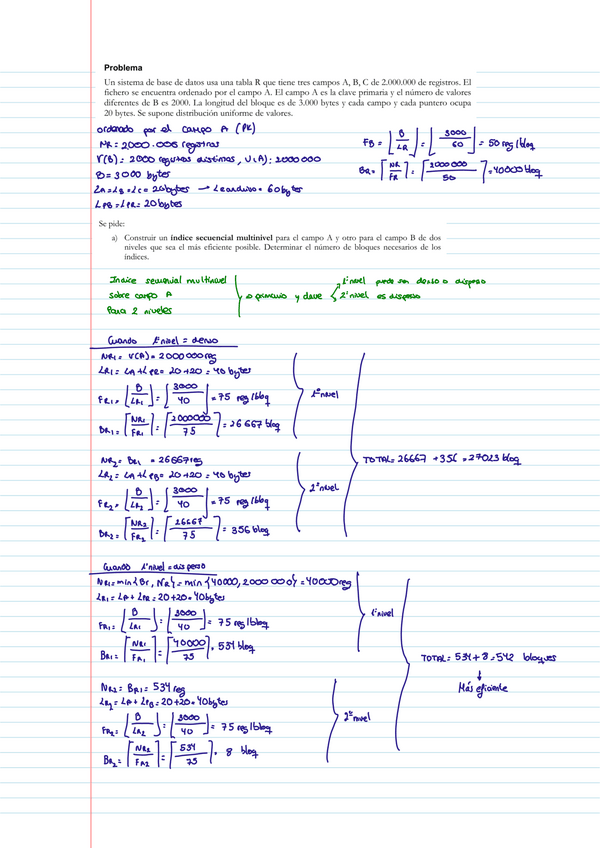 Problema
Un sistema de base de datos usa una tabla R que tiene tres campos A, B, C de 2.000.000 de registros. El
fichero se encuentra ordenado por el campo A. El campo A es la clave primaria y el número de valores
diferentes de B es 2000. La longitud del bloque es de 3.000 bytes y cada campo y cada puntero ocupa
20 bytes. Se supone distribución uniforme de valores.
ordenado por el campo A (PK)
NR = 2000.000 registros
V(B) = 2000 registros distintos, V(A) = 2000000
B = 3000 bytes
LA = LB = LC = 20 bytes → Lcardinal = 60 bytes
LPB = LPR = 20 bytes
FB = ⌊B/LR⌋ = ⌊3000/60⌋ = 50 reg/blog
BR = ⌈NR/FR⌉ = ⌈2000000/50⌉ = 40000 bloq
Se pide:
a) Construir un índice secuencial multinivel para el campo A y otro para el campo B de dos
niveles que sea el más eficiente posible. Determinar el número de bloques necesarios de los
índices.
Indice secuencial multinivel
sobre campo A
Para 2 niveles
primario y clave
1º nivel puede ser denso o disperso
2º nivel es disperso
Cuando 1º nivel = denso
NR1 = V(A) = 2000000 reg
LR1 = LA + LPR = 20 + 20 = 40 bytes
FR1 = ⌊B/LR1⌋ = ⌊3000/40⌋ = 75 reg/bloq
BR1 = ⌈NR1/FR1⌉ = ⌈2000000/75⌉ = 26667 bloq
1º nivel
NR2 = BR1 = 26667 reg
LR2 = LA + LPB = 20 + 20 = 40 bytes
FR2 = ⌊B/LR2⌋ = ⌊3000/40⌋ = 75 reg/bloq
BR2 = ⌈NR2/FR2⌉ = ⌈26667/75⌉ = 356 bloq
2º nivel
TOTAL = 26667 + 356 = 27023 bloq
Cuando 1º nivel = disperso
NR1 = min{Br, NR} = min{40000, 2000000} = 40000 reg
LR1 = LA + LPR = 20 + 20 = 40 bytes
FR1 = ⌊B/LR1⌋ = ⌊3000/40⌋ = 75 reg/bloq
BR1 = ⌈NR1/FR1⌉ = ⌈40000/75⌉ = 534 bloq
1º nivel
NR2 = BR1 = 534 reg
LR2 = LA + LPB = 20 + 20 = 40 bytes
FR2 = ⌊B/LR2⌋ = ⌊3000/40⌋ = 75 reg/bloq
BR2 = ⌈NR2/FR2⌉ = ⌈534/75⌉ = 8 bloq
2º nivel
TOTAL = 534 + 8 = 542 bloques
↓
Más eficiente